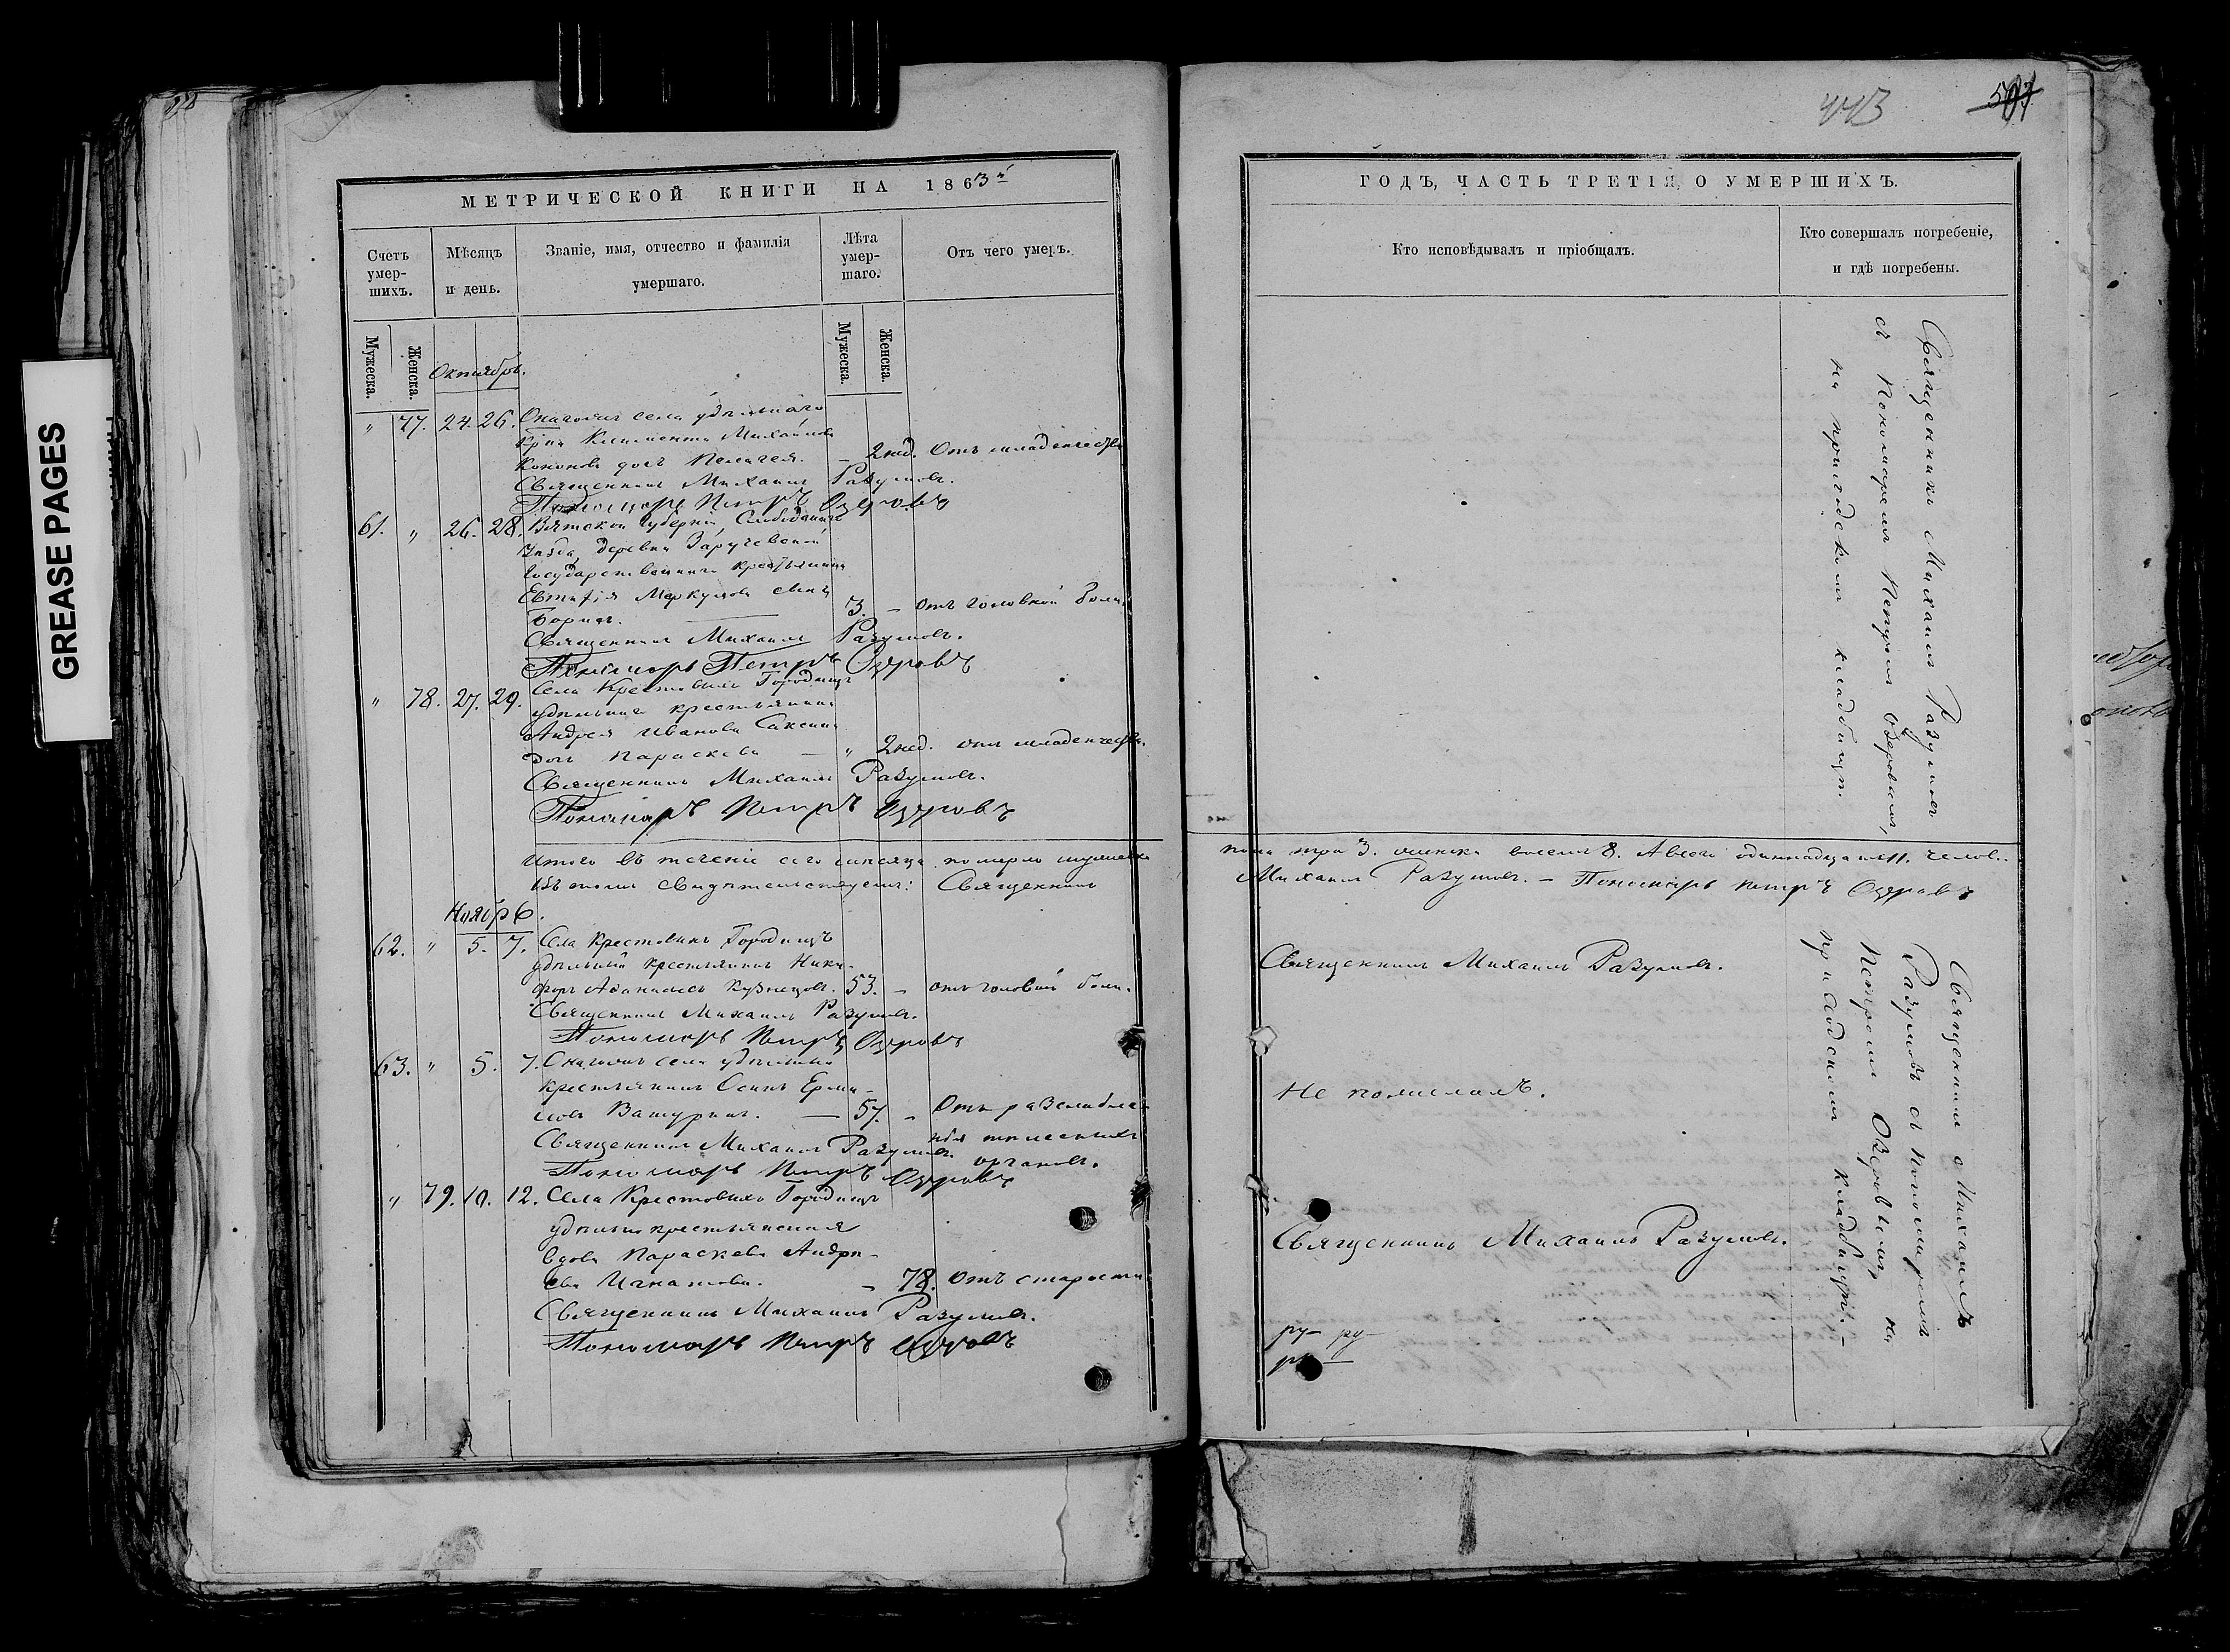 GREASE PAGES
МЕТРИЧЕСКОЙ КНИГИ НА 1863й
Счетъ умер-шихъ.
Мѣсяцъ и день.
Званіе, имя, отчество и фамилія умершаго.
Лѣта умер-шаго.
Отъ чего умеръ.
Мужеска.
Женска.
Мужеска.
Женска.
Октябрь.
" 77. 24. 26. села удѣльнаго
Климента Михайлова
дочь Пелагея. – 2 нед. Отъ младенчества
Священникъ Михаилъ Разумовъ.
Пономарь Петръ Озеровъ
61. " 26. 28. Вятской губерніи, Слободскаго
уѣзда, деревни
Государственнаго крестьянина
Меркулова сынъ
Борисъ. 3. – отъ головной боли.
Священникъ Михаилъ Разумовъ.
Пономарь Петръ Озеровъ
" 78. 27. 29. Села Крестовыхъ Городищъ
удѣльнаго крестьянина
Андрея Иванова
дочь Параскева – " 2 нед. отъ младенчества.
Священникъ Михаилъ Разумовъ.
Пономарь Петръ Озеровъ
Итого въ теченіе сего мѣсяца померло мужеска
Въ томъ свидѣтельствуемъ: Священникъ
Ноябрь.
62. " 5. 7. Села Крестовыхъ Городищъ
удѣльный крестьянинъ Ники-
форъ Кузнецовъ. 53. – отъ головной боли.
Священникъ Михаилъ Разумовъ.
Пономарь Петръ Озеровъ
63. " 5. 7. села удѣльный
крестьянинъ Осипъ Ерми-
ловъ – 57. – Отъ разслабле-
нія тѣлесныхъ
органовъ.
Священникъ Михаилъ Разумовъ.
Пономарь Петръ Озеровъ
" 79. 10. 12. Села Крестовыхъ Городищъ
удѣльная крестьянская
вдова Параскева Андре-
ева – 78. Отъ старости
Священникъ Михаилъ Разумовъ.
Пономарь Петръ Озеровъ
ГОДЪ, ЧАСТЬ ТРЕТІЯ, О УМЕРШИХЪ.
Кто исповѣдывалъ и пріобщалъ.
Кто совершалъ погребеніе, и гдѣ погребены.
Священникъ Михаилъ Разумовъ
съ Пономаремъ Петромъ Озеровымъ,
на приходскомъ кладбищѣ.
пола три 3. женска восемь 8. А всего одиннадцать 11. челов.
Михаилъ Разумовъ. – Пономарь Петръ Озеровъ
Священникъ Михаилъ Разумовъ.
Не
Священникъ Михаилъ Разумовъ.
Священникъ Михаилъ
Разумовъ съ пономаремъ
Петромъ Озеровымъ, на
приходскомъ кладбищѣ. –